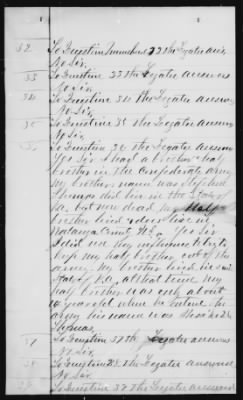 32 To Question Numbered 32 the Legatee answers
No Sir.
33 To Question 33 the Legatee answers
No Sir.
34 To Question 34 the Legatee answers
No Sir.
35 To Question 35 the Legatee answers
No Sir.
To Question 36 the Legatee answers
Yes Sir I had a brother & half
brother in the Confederate army
my brother name was
did live in the State of
Va. but now dead Half
brother lived
County N.C. Yes Sir
I did use my influence to try to
keep my half brother out of the
army. My brother lived in
State of Va. at that time My
half brother was only about
years old when he entered the
army his name was
Thomas.
37 To Question 37th Legatee answers
No Sir
To Question 38 the Legatee answered
No Sir.
To Question 39 the Legatee answered